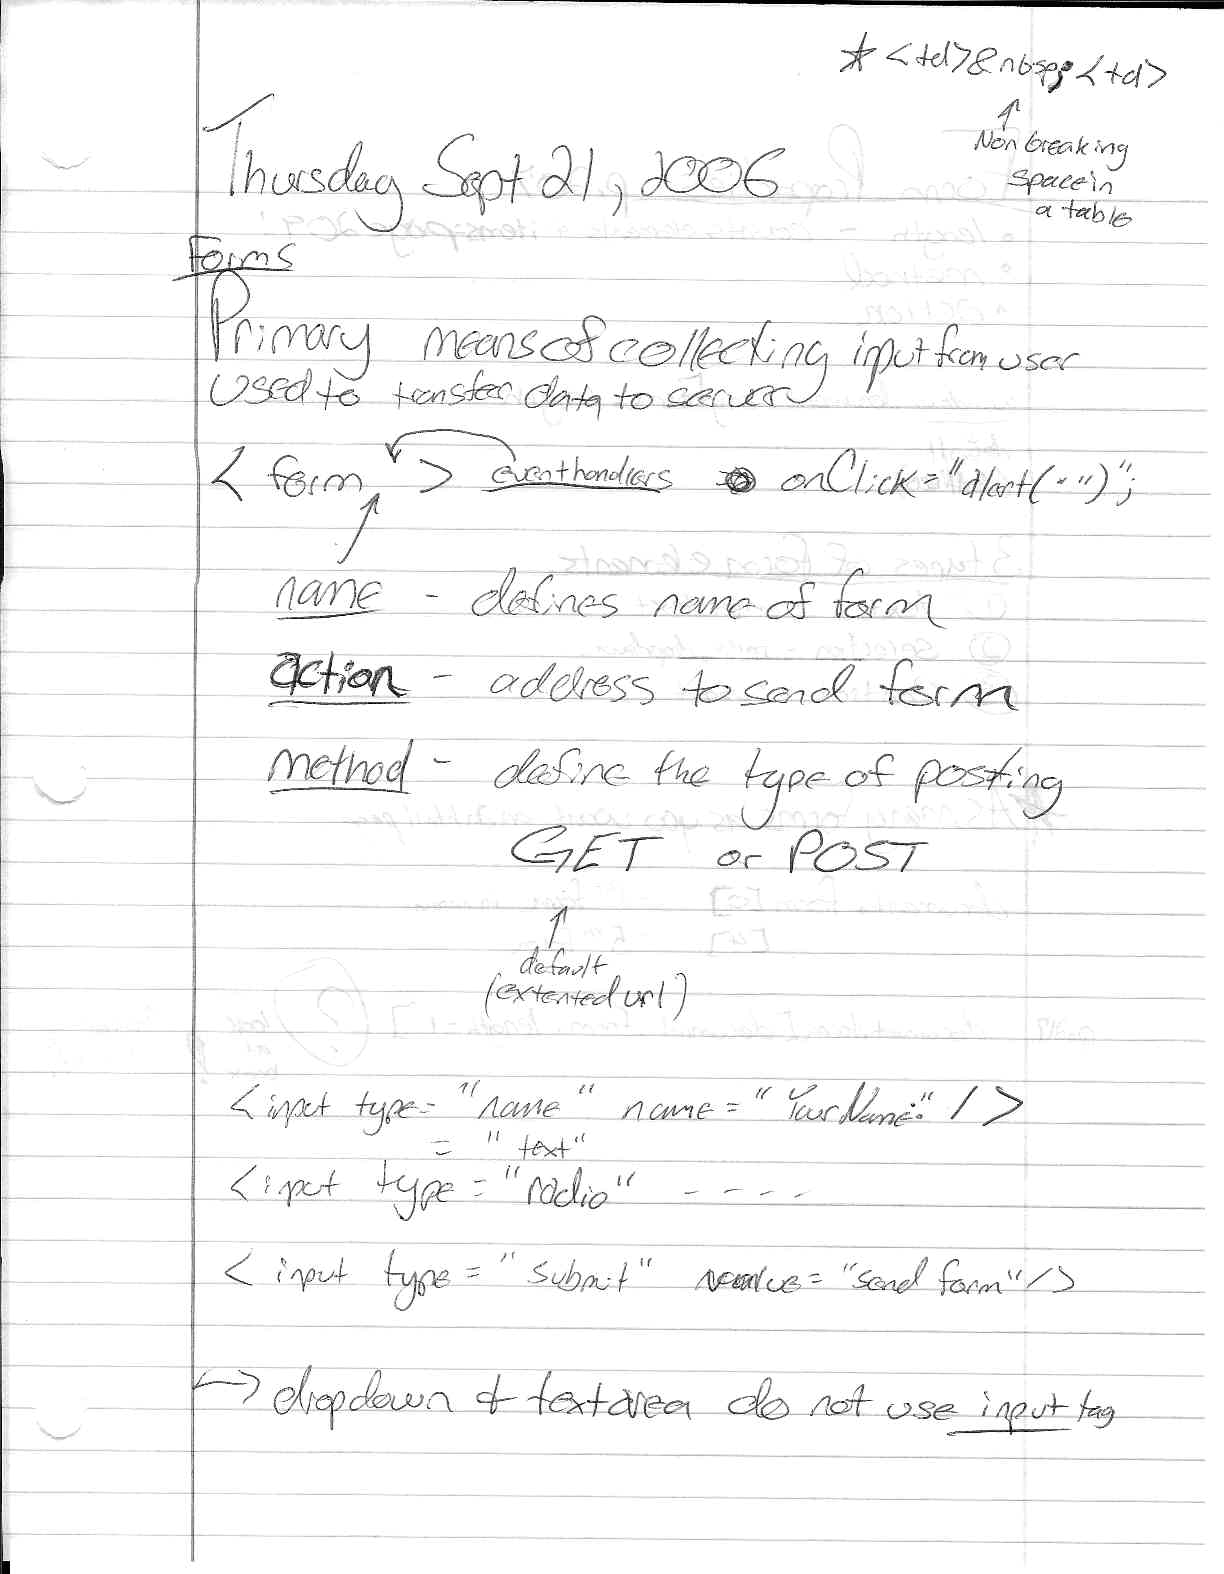 * <td>&nbsp;<td>
Non breaking
space in
a table
Thursday Sept 21, 2006
Forms
Primary means of collecting input from user
Used to transfer data to server
< form > eventhandlers onClick="alert(" ")";
name - defines name of form
action - address to send form
method - define the type of posting
GET or POST
default
(extented url)
<input type= "name" name = "YourName:" />
= "text"
<input type = "radio" - - - -
< input type = "submit" value = "send form" />
→ dropdown & textarea do not use input tag